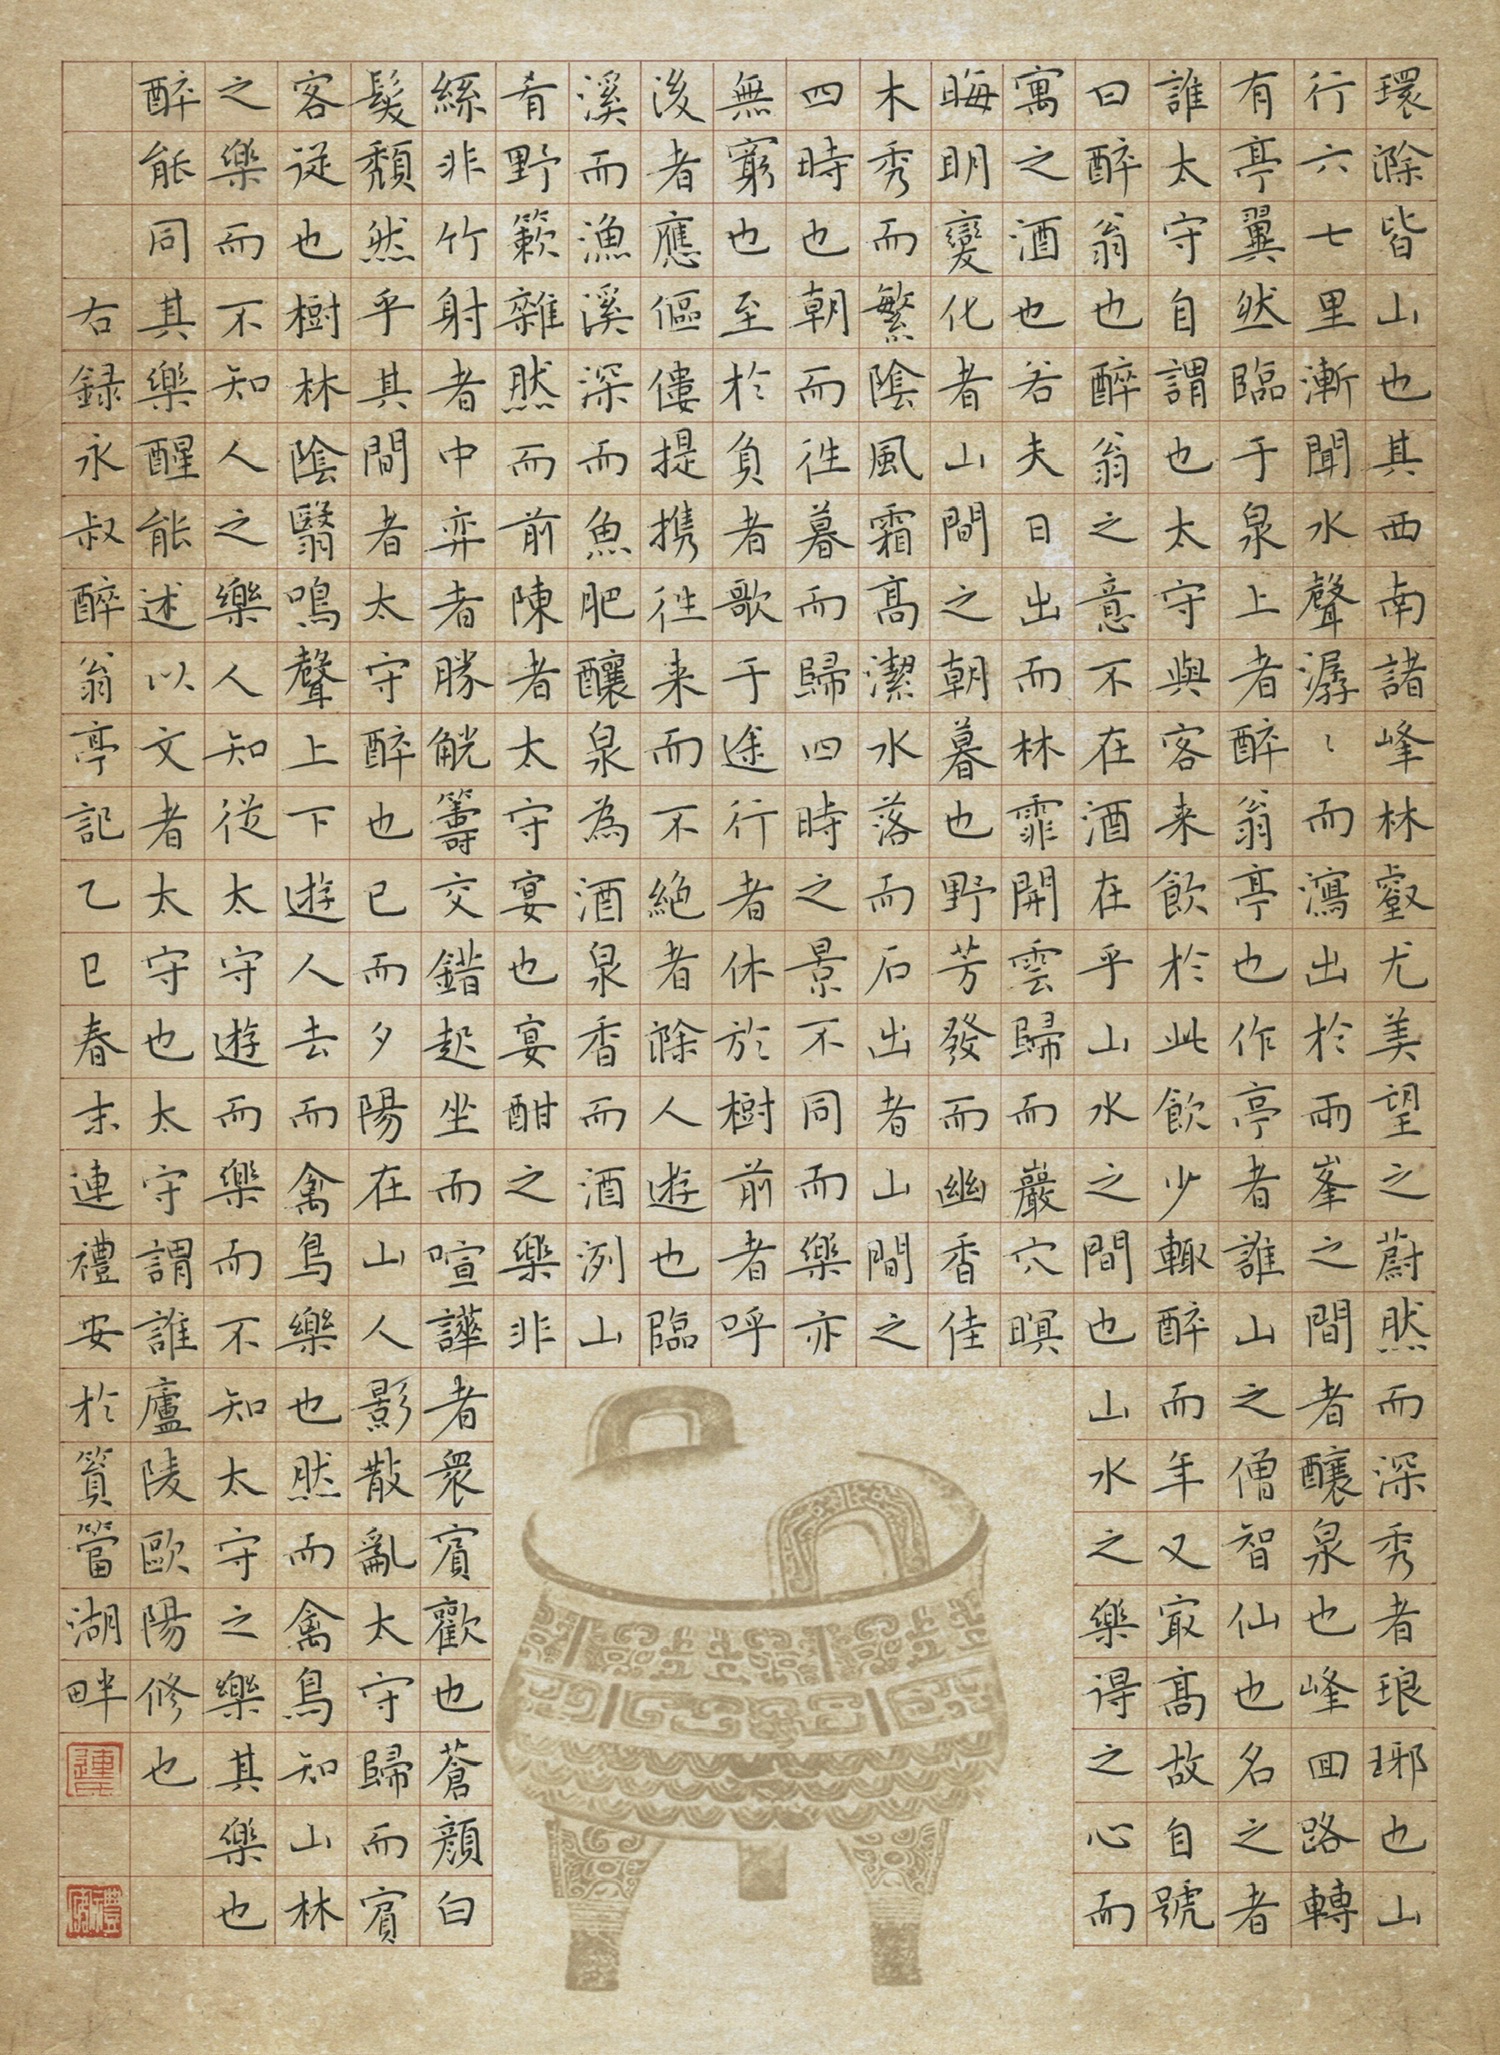 環滁皆山也其西南諸峰林叡尤美望之蔚然而深秀者琅琊也山
行六七里漸聞水聲潺〻而瀉出於兩峯之間者釀泉也峰回路轉
有亭翼然臨于泉上者醉翁亭也作亭者誰山之僧智仙也名之者
誰太守自謂也太守與客来飲於此飲少輙醉而年又冣高故自號
曰醉翁也醉翁之意不在酒在乎山水之間也山水之樂得之心而
寓之酒也若夫日出而林霏開雲歸而巖穴暝
晦明變化者山間之朝暮也野芳發而幽香佳
木秀而繁陰風霜高潔水落而石出者山間之
四時也朝而往暮而歸四時之景不同而樂亦
無窮也至於負者歌于途行者休於樹前者呼
後者應傴僂提携往来而不絶者滁人遊也臨
溪而漁溪深而魚肥釀泉為酒泉香而酒洌山
肴野簌雜然而前陳者太守宴也宴酣之樂非
絲非竹射者中弈者勝觥籌交錯起坐而喧譁者衆賓歡也蒼顔白
髮頹然乎其間者太守醉也已而夕陽在山人影散亂太守歸而賓
客從也樹林陰翳鳴聲上下遊人去而禽鳥樂也然而禽鳥知山林
之樂而不知人之樂人知從太守遊而樂而不知太守之樂其樂也
醉能同其樂醒能述以文者太守也太守謂誰廬陵歐陽修也
右録永叔醉翁亭記乙巳春末連禮安於篔簹湖畔
連氏
禮安